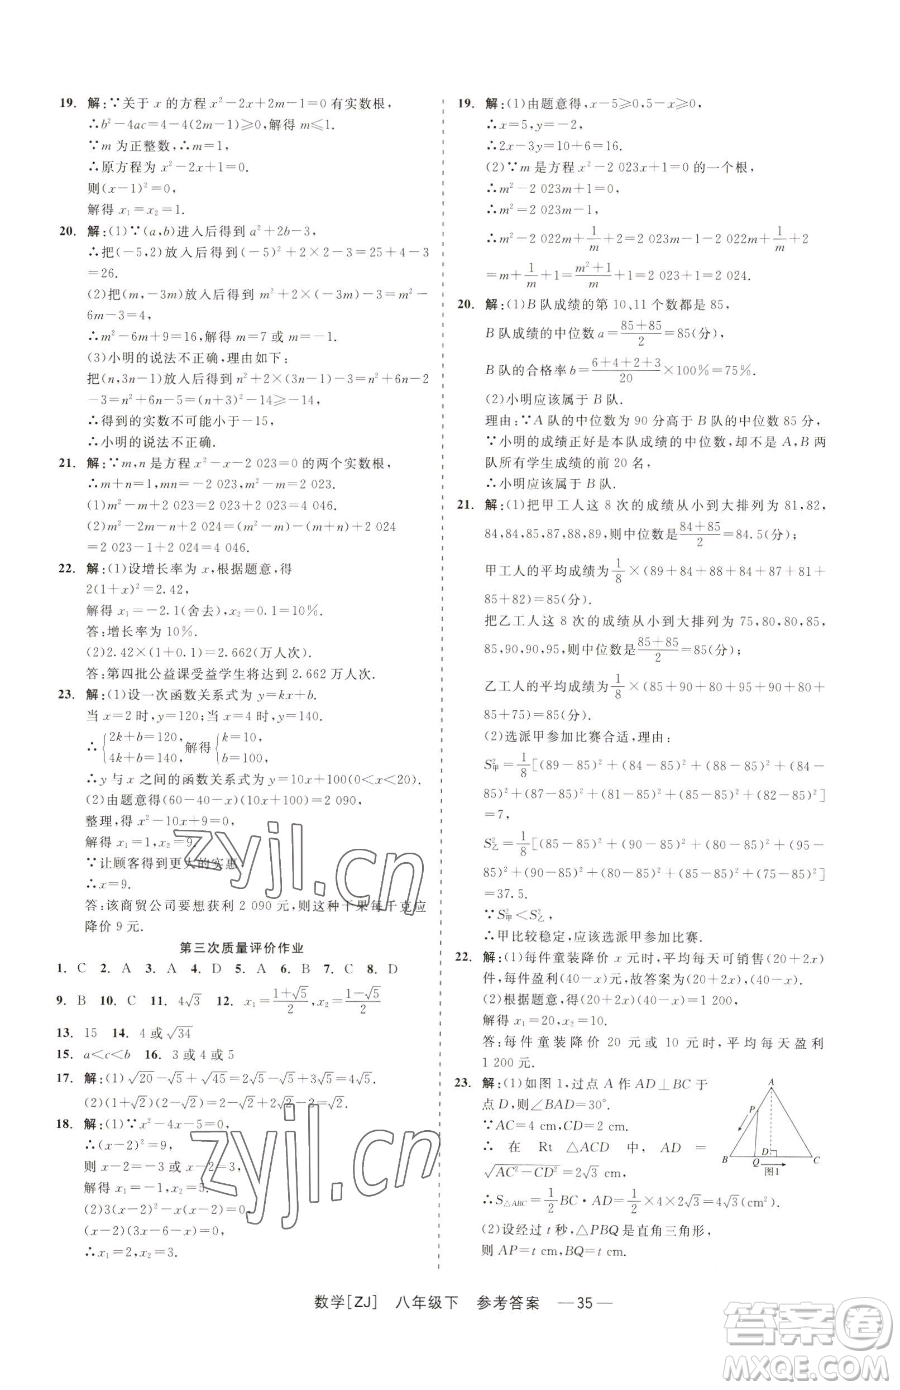 19. 解:∵关于 x 的方程 x²-2x+2m-1=0 有实数根,
∴b²-4ac=4-4(2m-1)≥0,解得 m≤1.
∵m 为正整数,∴m=1,
∴原方程为 x²-2x+1=0.
则(x-1)²=0,
解得 x₁=x₂=1.
20. 解:(1)∵(a,b)进入后得到 a²+2b-3,
∴把(-5,2)放入后得到(-5)²+2×2-3=25+4-3
=26.
(2)把(m,-3m)放入后得到 m²+2×(-3m)-3=m²-
6m-3=4,
∴m²-6m+9=16,解得 m=7 或 m=-1.
(3)小明的说法不正确,理由如下:
把(n,3n-1)放入后得到 n²+2×(3n-1)-3=n²+6n-2
-3=n²+6n-5=(n+3)²-14≥-14,
∴得到的实数不可能小于-14,
∴小明的说法不正确.
21. 解:∵m,n 是方程 x²-x-2 023=0 的两个实数根,
∴m+n=1,m²-m=2 023.
(1)m²-m+2 023=2 023+2 023=4 046.
(2)m²-2m-n+2 024=(m²-m)-(m+n)+2 024
=2 023-1+2 024=4 046.
22. 解:(1)设增长率为 x,根据题意,得
2(1+x)²=2.42,
解得 x₁=-2.1(舍去),x₂=0.1=10%.
答:增长率为 10%.
(2)2.42×(1+0.1)=2.662(万人次).
答:第四批公益课受益学生将达到 2.662 万人次.
23. 解:(1)设一次函数关系式为 y=kx+b.
当 x=2 时,y=120;当 x=4 时,y=140.
∴{2k+b=120, 4k+b=140, 解得{k=10, b=100.
∴y 与 x 之间的函数关系式为 y=10x+100(0<x<20).
(2)由题意得(60-40-x)(10x+100)=2 090,
整理,得 x²-10x+9=0,
解得 x₁=1,x₂=9.
∵让顾客得到更大的实惠,
∴x=9.
答:该商贸公司要想获利 2 090 元,则这种干果每千克应
降价 9 元.
第三次质量评价作业
1. C 2. A 3. A 4. D 5. A 6. C 7. C 8. D
9. B 10. C 11. 4√3 12. x₁=(1+√5)/2,x₂=(1-√5)/2
13. 15 14. 4 或√34
15. a<c<b 16. 3 或 4 或 5
17. 解:(1)√20-√5+√45=2√5-√5+3√5=4√5.
(2)(1+√2)(2-√2)=2-√2+2√2-2=√2.
18. 解:(1)∵x²-4x-5=0,
∴(x-2)²=9,
则 x-2=3 或 x-2=-3,
解得 x₁=-1,x₂=5.
(2)3(x-2)²-x(x-2)=0,
(x-2)(3x-6-x)=0,
∴x₁=2,x₂=3.
19. 解:(1)由题意得,x-5≥0,5-x≥0,
∴x=5,y=-2,
∴2x-3y=2×5+6=16.
(2)∵m 是方程 x²-2 023x+1=0 的一个根,
∴m²-2 023m+1=0,
∴m²+1=2 023m,
∴m²-2 022m+1/m+2=2 023m-1-2 022m+1/m+2
=m+1/m+1=(m²+1)/m+1=2 023+1=2 024.
20. 解:(1)B 队成绩的第 10、11 个数都是 85,
B 队成绩的中位数 a=(85+85)/2=85(分),
B 队的合格率 b=(6+4+2+3)/20×100%=75%.
(2)小明应该属于 B 队.
理由:∵A 队的中位数为 90 分高于 B 队的中位数 85 分,
∵小明的成绩正好一本队成绩的中位数,却不是 A、B 两
队所有学生成绩的前 20 名,
∴小明应该属于 B 队.
21. 解:(1)把甲工人这 8 次的成绩从小到大排列为 81,82,
84,84,85,87,88,89,则中位数是(84+85)/2=84.5(分).
甲工人的平均成绩为1/8×(89+84+88+84+87+81+
85+82)=85(分).
把乙工人这 8 次的成绩从小到大排列为 75,80,80,85,
85,90,90,95,则中位数是(85+85)/2=85(分).
乙工人的平均成绩为1/8×(85+90+80+95+90+80+
85+75)=85(分).
(2)选派甲参加比赛合适,理由:
S²甲=1/8[(89-85)²+(84-85)²+(88-85)²+(84-
85)²+(87-85)²+(81-85)²+(85-85)²+(82-85)²]
=7,
S²乙=1/8[(85-85)²+(90-85)²+(80-85)²+(95-
85)²+(90-85)²+(80-85)²+(85-85)²+(75-85)²]
=37.5.
∵S²甲<S²乙,
∴甲比较稳定,应该选派甲参加比赛.
22. 解:(1)每件童装降价 x 元时,平均每天可销售(20+2x)
件,每件盈利(40-x)元,故答案为(20+2x),(40-x).
(2)根据题意,得(20+2x)(40-x)=1 200,
解得 x₁=20,x₂=10.
答:每件童装降价 20 元或 10 元,平均每天盈利
1 200 元.
23. 解:(1)如图 1,过点 A 作 AD⊥BC 于
点 D,则∠BAD=30°.
∵AC=4 cm,CD=2 cm.
∴在 Rt△ACD 中,AD=
√(AC²-CD²)=2√3 cm,
∴S△ABC=1/2BC·AD=1/2×4×2√3=4√3(cm²).
(2)设经过 t 秒,△PBQ 是直角三角形,
则 AP=t cm,BQ=t cm.
A
P
B
Q
D
C
图1
zyjl.cn
zyjl.cn
数学[ZJ] 八年级下 参考答案 —35—
答案圈
MXQE.COM